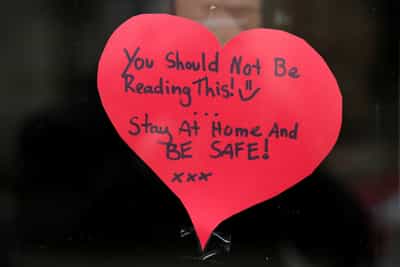 You Should Not Be
Reading This!
...
Stay At Home And
BE SAFE!
xxx